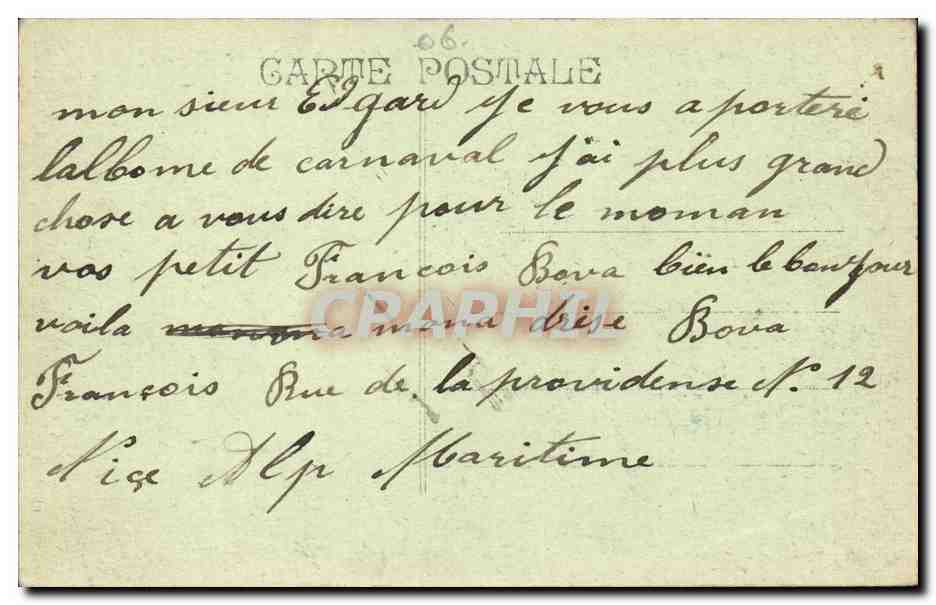 06.
CARTE POSTALE
mon sieur Edgard je vous a porterè
lalbome de carnaval j'ai plus grand
chose a vous dire pour le moman
vos petit François Bova bien le bonjour
CRAPHIL
voila mona drèse Bova
François Rue de la providense N. 12
Niçe Alp Maritime